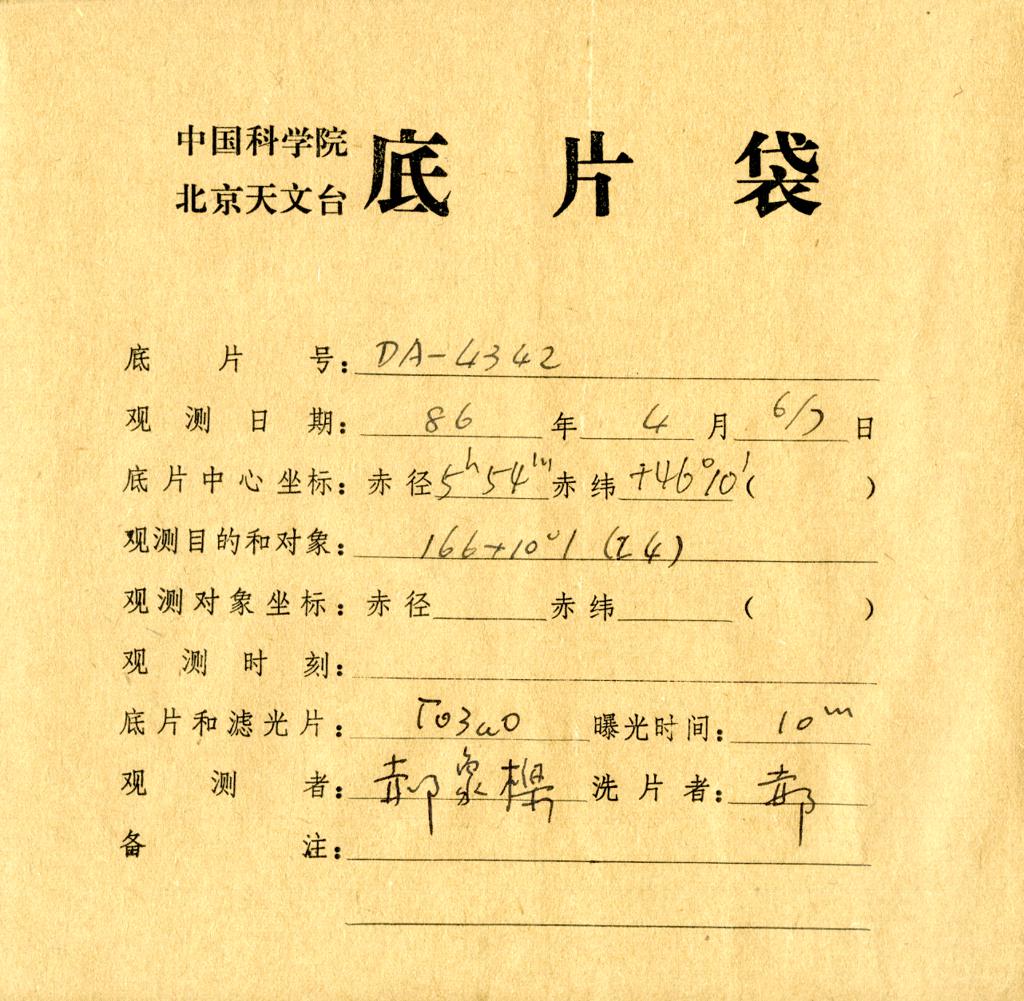 中国科学院
北京天文台 底片袋
底片号: DA-4342
观测日期: 86年4月6/7日
底片中心坐标: 赤径5ʰ54ᵐ赤纬+46°10′( )
观测目的和对象: 166+10°1 (I4)
观测对象坐标: 赤径 赤纬 ( )
观测时刻:
底片和滤光片: 103aO 曝光时间: 10ᵐ
观测者: 郝象樑 洗片者: 郝
备注: